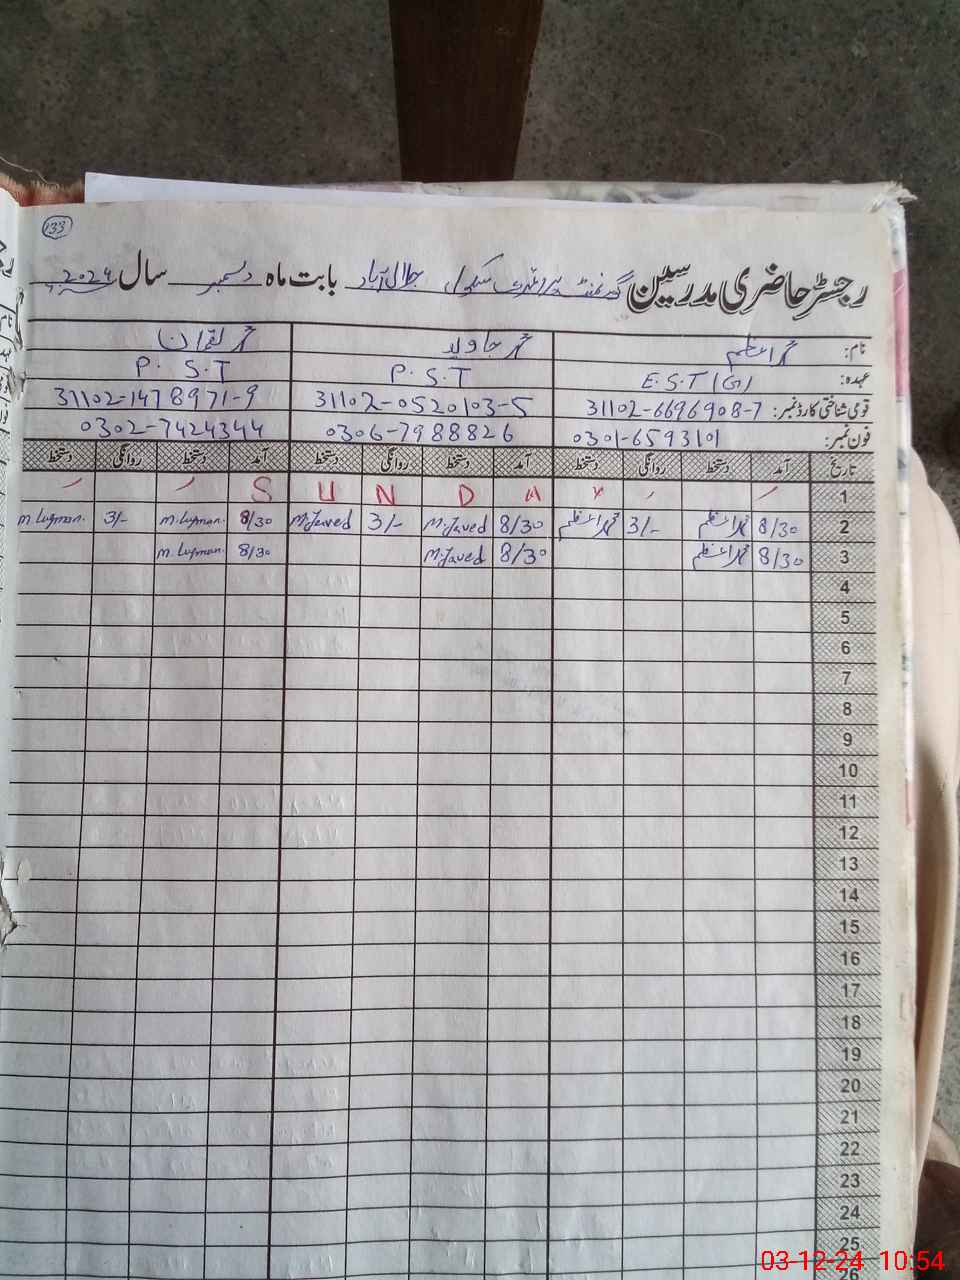 133
رجسٹر حاضری مدرسین گورنمنٹ پرائمری سکول جلال آباد بابت ماہ دسمبر سال 2024
نام: محمد اعظم محمد جاوید محمد لقمان
عہدہ: E.S.T(G) P.S.T P.S.T
قومی شناختی کارڈ نمبر: 31102-6696908-7 31102-0520103-5 31102-1478971-9
فون نمبر: 0301-6593101 0306-7988826 0302-7424344
تاریخ آمد دستخط روانگی دستخط آمد دستخط روانگی دستخط آمد دستخط روانگی دستخط
1 S U N D A Y
2 8/30 محمد اعظم 3/- محمد اعظم 8/30 M.Javed 3/- M.Javed 8/30 M.Luqman. 3/- M.Luqman.
3 8/30 محمد اعظم 8/30 M.Javed 8/30 M.Luqman.
4
5
6
7
8
9
10
11
12
13
14
15
16
17
18
19
20
21
22
23
24
25
03-12-24 10:54